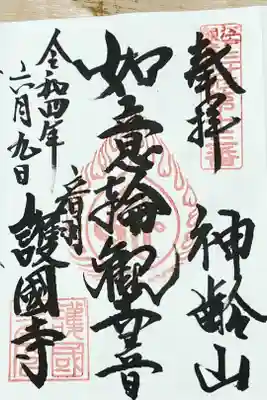 奉拝
神齢山
如意輪観世音
音羽
護國寺
令和四年
六月九日
護國